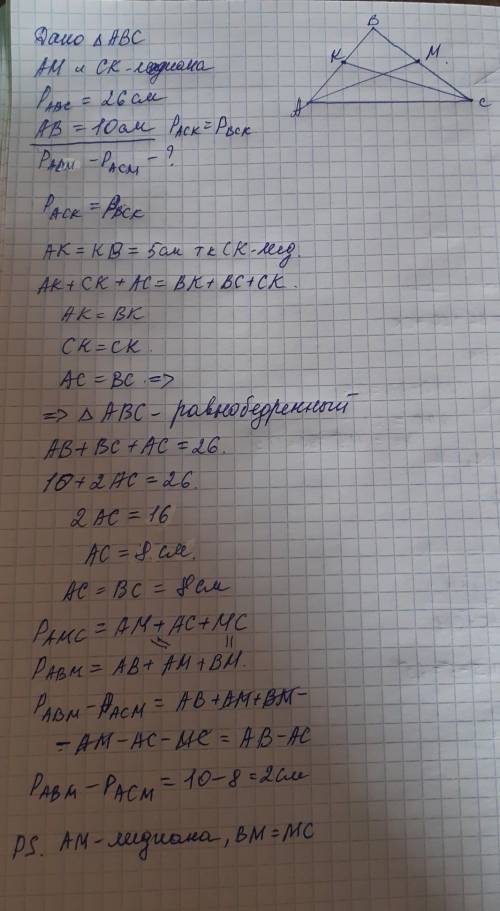 B
K
M.
A
C
Дано △ABC
AM и CK - медиана
P_ABC = 26 см
AB = 10 см P_ACK = P_BCK
P_ABM - P_ACM - ?
P_ACK = P_BCK
AK = KB = 5 см тк CK - мед.
AK + CK + AC = BK + BC + CK.
AK = BK
CK = CK.
AC = BC. =>
=> △ ABC - равнобедренный
AB + BC + AC = 26.
10 + 2AC = 26.
2AC = 16
AC = 8 см.
AC = BC = 8 см
P_AMC = AM + AC + MC
= ||
P_ABM = AB + AM + BM.
P_ABM - P_ACM = AB + AM + BM -
- AM - AC - MC = AB - AC
P_ABM - P_ACM = 10 - 8 = 2 см
PS. AM - медиана, BM = MC